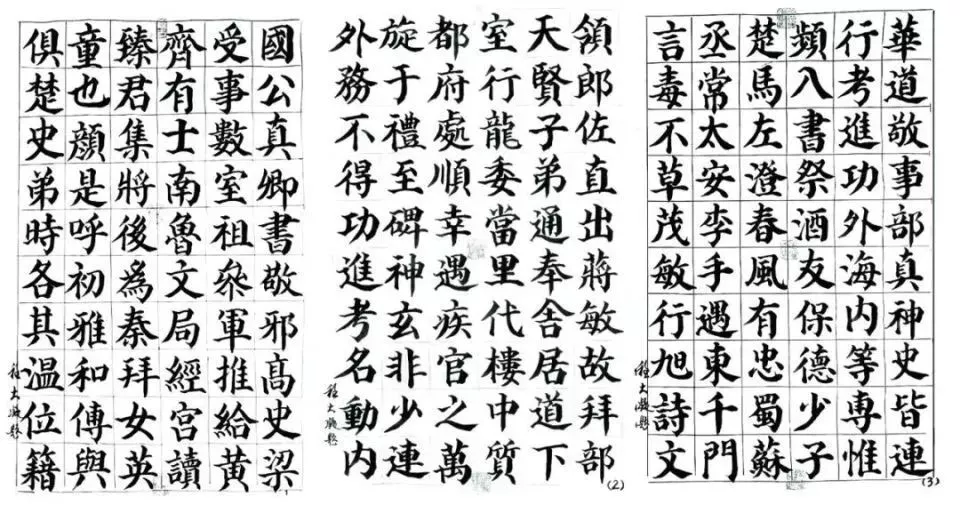 國公真卿書敬邪髙史梁
受事數室祖叅軍推給黃
齊有士南魯文局經宮讀
臻君集將後爲秦拜女英
童也顏是呼初雅和傅與
俱楚史弟時各其溫位籍
領郎佐直出蔣敏故拜部
天賢子弟通奉舍居道下
室行龍委當里代樓中質
都府處順幸遇疾官之萬
旋于禮至碑神玄非少連
外務不得功進考名動内
(2)
華道敬事部真神史皆連
行考進功外海内等專惟
頻八書祭酒友保德少子
楚馬左澄春風有忠蜀蘇
丞常太安李手遇東千門
言毒不草茂敏行旭詩文
(3)